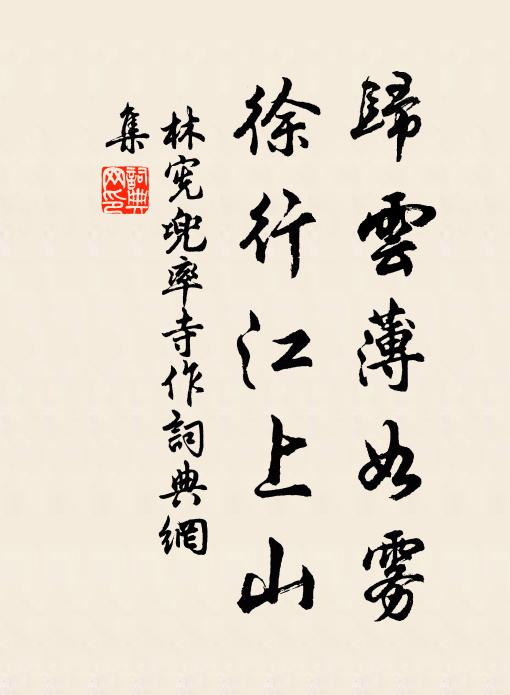 歸雲薄如雾
徐行江上山
林宪兜率寺作詞典網
集
詞典
网印